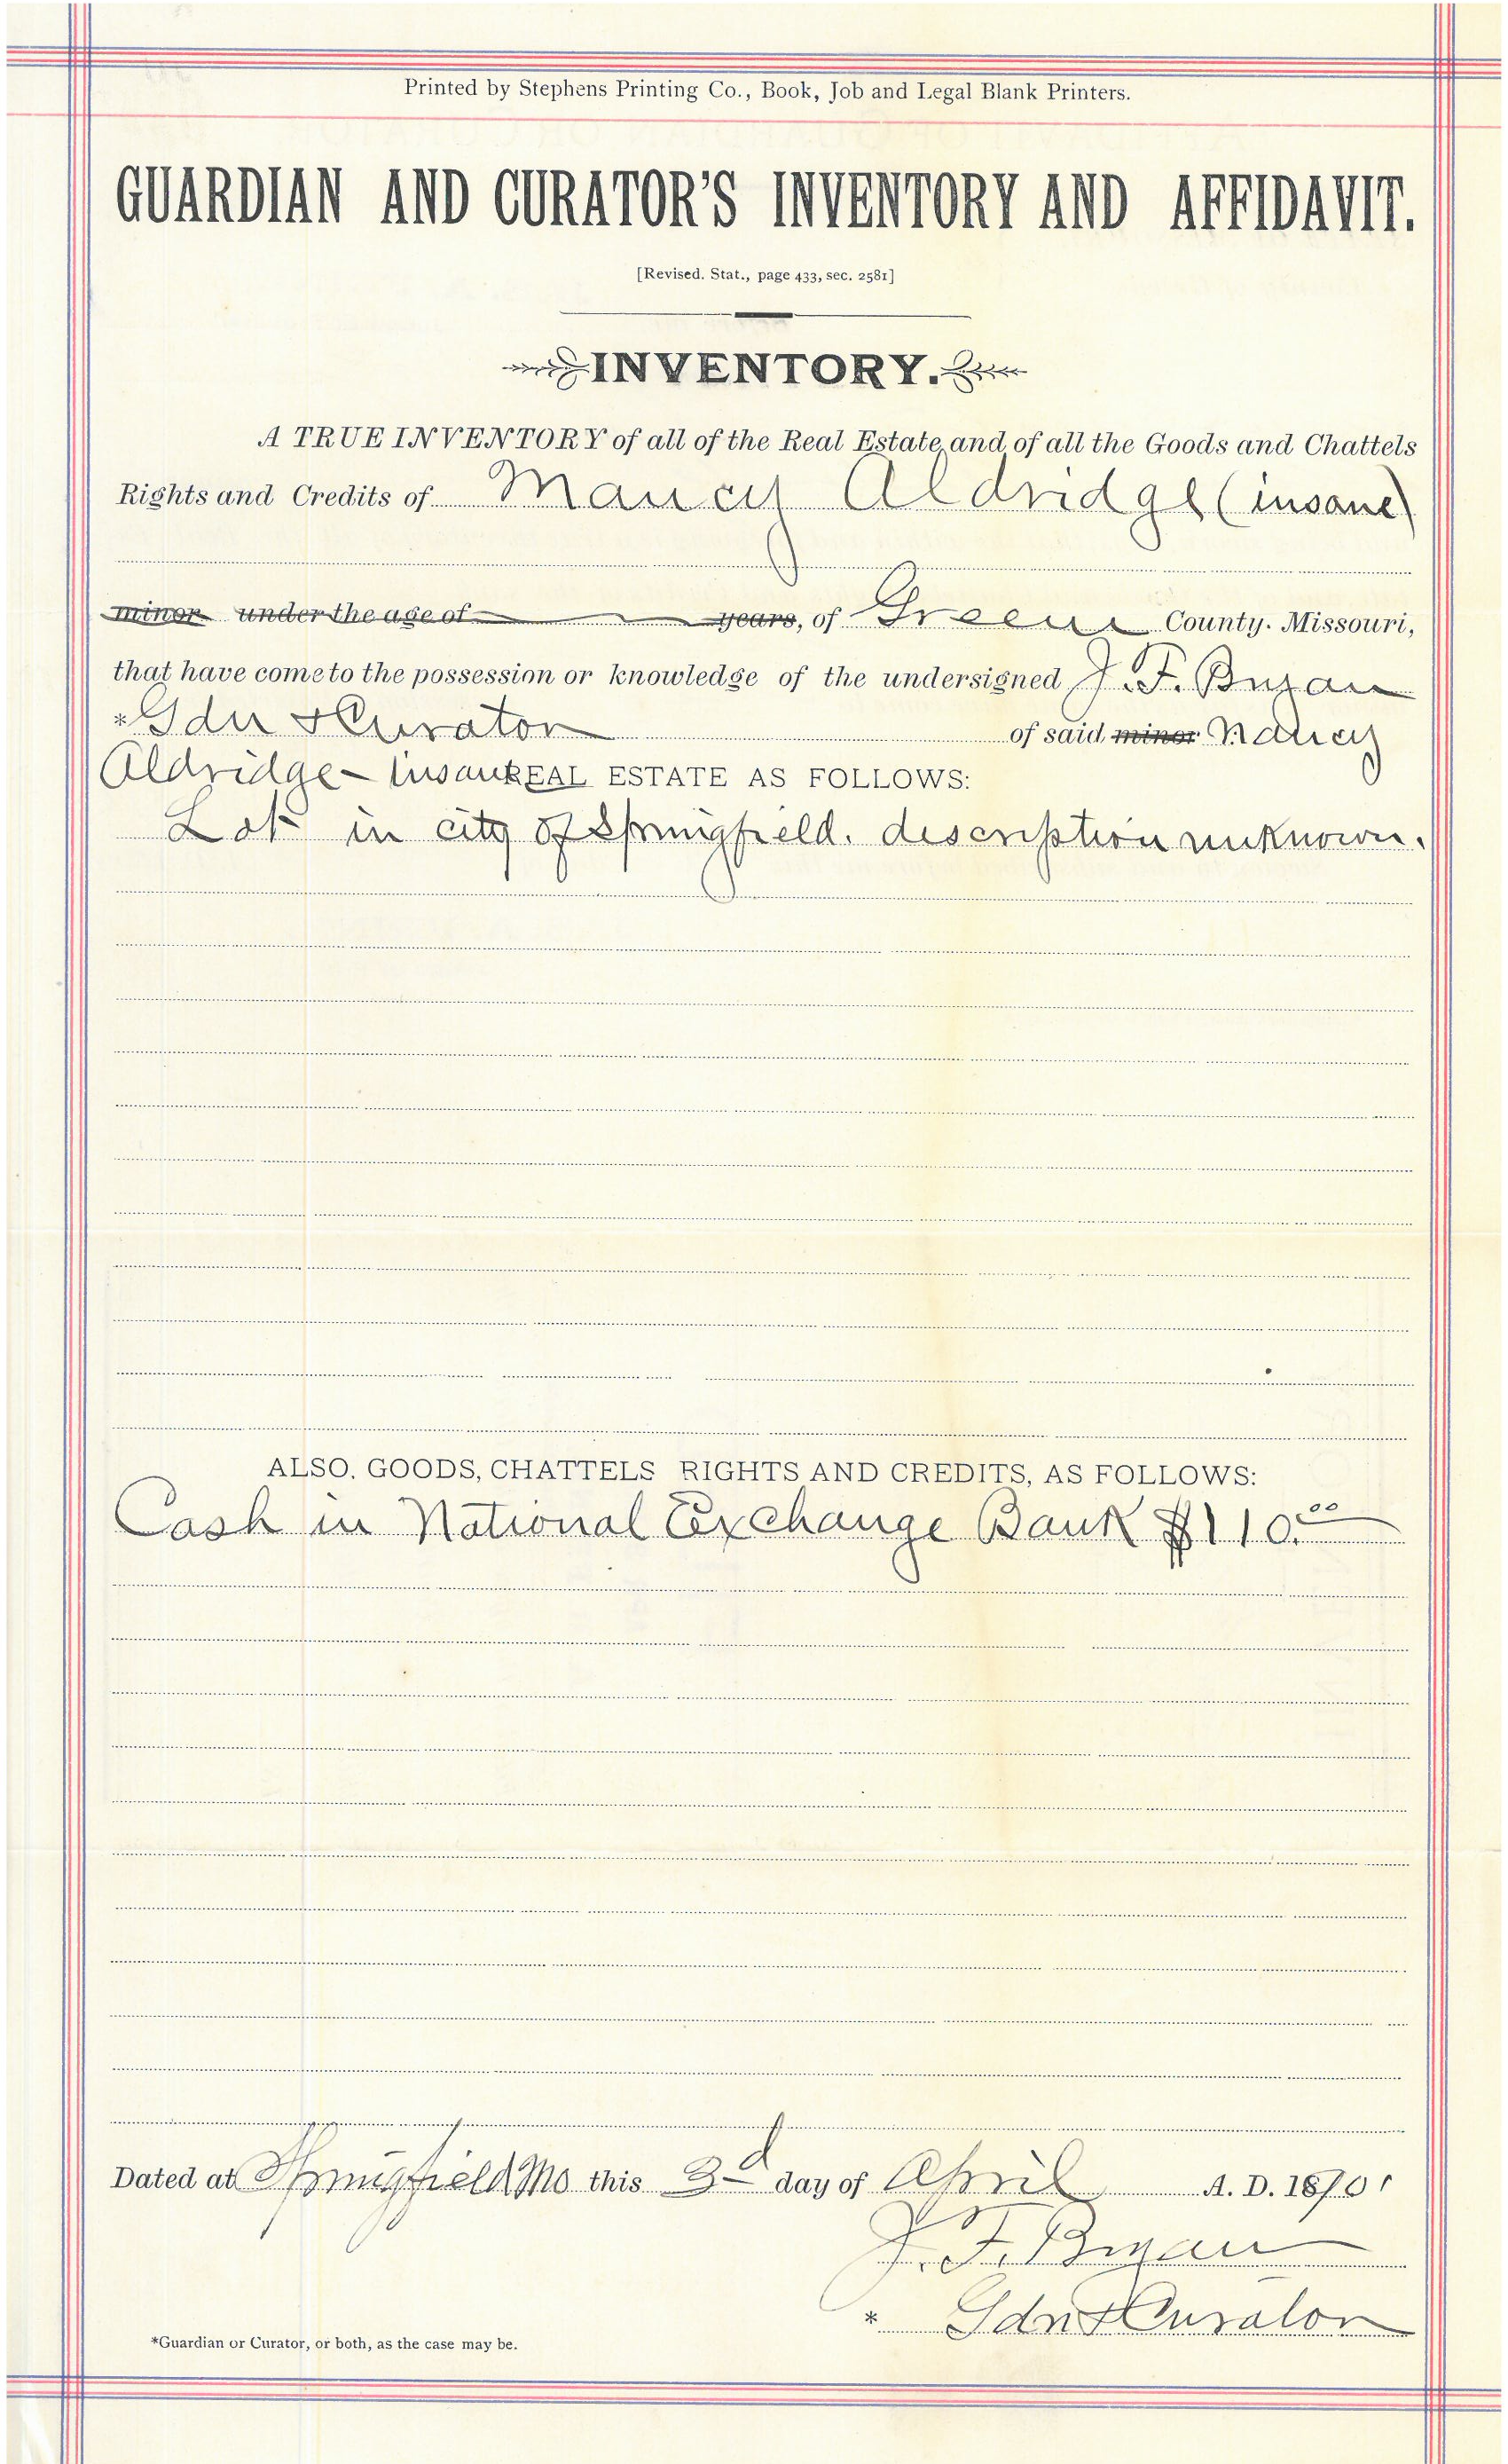 Printed by Stephens Printing Co., Book, Job and Legal Blank Printers.
GUARDIAN AND CURATOR'S INVENTORY AND AFFIDAVIT.
[Revised. Stat., page 433, sec. 2581]
INVENTORY.
A TRUE INVENTORY of all of the Real Estate and of all the Goods and Chattels
Rights and Credits of Nancy Aldridge (insane)
minor under the age of years, of Greene County. Missouri,
that have come to the possession or knowledge of the undersigned J. F. Bryan
*Gdn & Curator of said minor Nancy
Aldridge - Insane REAL ESTATE AS FOLLOWS:
Lot in city of Springfield. description unknown.
ALSO, GOODS, CHATTELS RIGHTS AND CREDITS, AS FOLLOWS:
Cash in National Exchange Bank $110.00
Dated at Springfield Mo this 3d day of April A. D. 1901
J. F. Bryan
* Gdn & Curator
*Guardian or Curator, or both, as the case may be.